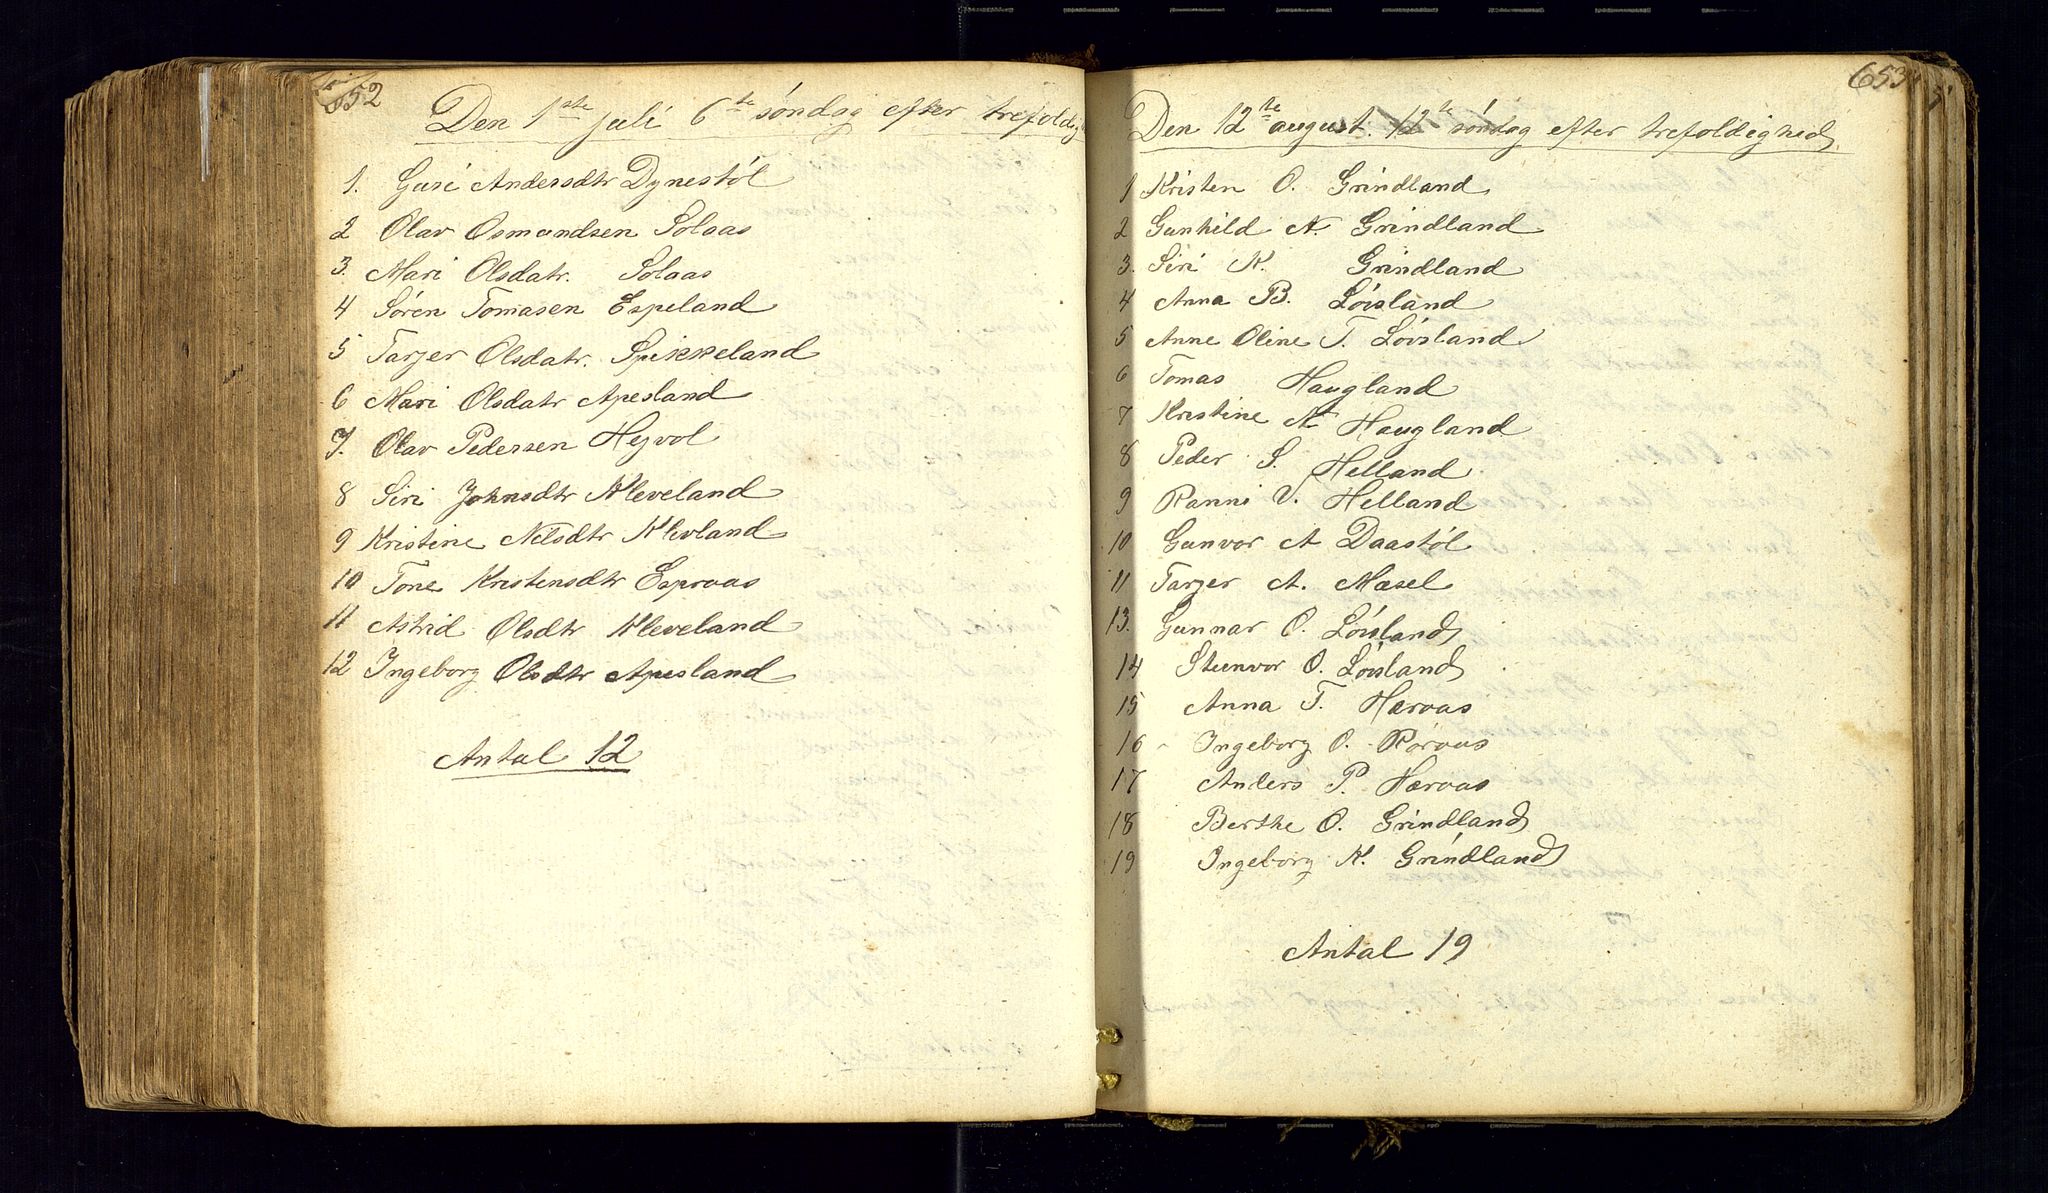 652
Den 1ste juli 6te søndag efter trefoldig
1. Guri Andersdtr Dynestøl
2 Olav Osmundsen Solaas
3. Mari Olsdatr. Solaas
4 Søren Tomasen Espeland
5 Tarjer Olsdatr. Spikkeland
6 Mari Olsdatr Apesland
7. Olav Pedersen Hejvol
8 Siri Johnsdtr Kleveland
9 Kristine Nelsdtr Klevland
10 Tone Kristensdtr Espraas
11 Astrid Olsdtr Kleveland
12 Ingeborg Olsdtr Apesland
Antal 12
653
Den 12te august. 12te søndag efter trefoldighed
1 Kristen O. Grindland
2 Gunhild A. Grindland
3. Siri K. Grindland
4 Anna B. Løvsland
5 Anne Oline T. Løvsland
6 Tomas Haugland
7 Kristine A Haugland
8 Peder S. Helland
9 Ranni V. Helland
10 Gunvor A Daastøl
11 Tarjer A. Mæsel
13. Gunnar O. Løvsland
14 Steenvor O. Løvsland
15 Anna T. Hærvas
16 Ingeborg O. Rorvas
17 Anders P. Hærvas
18 Berthe O. Grindland
19 Ingeborg K. Grindland
Antal 19